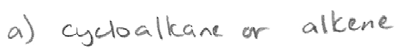 a) cycloalkane or alkene